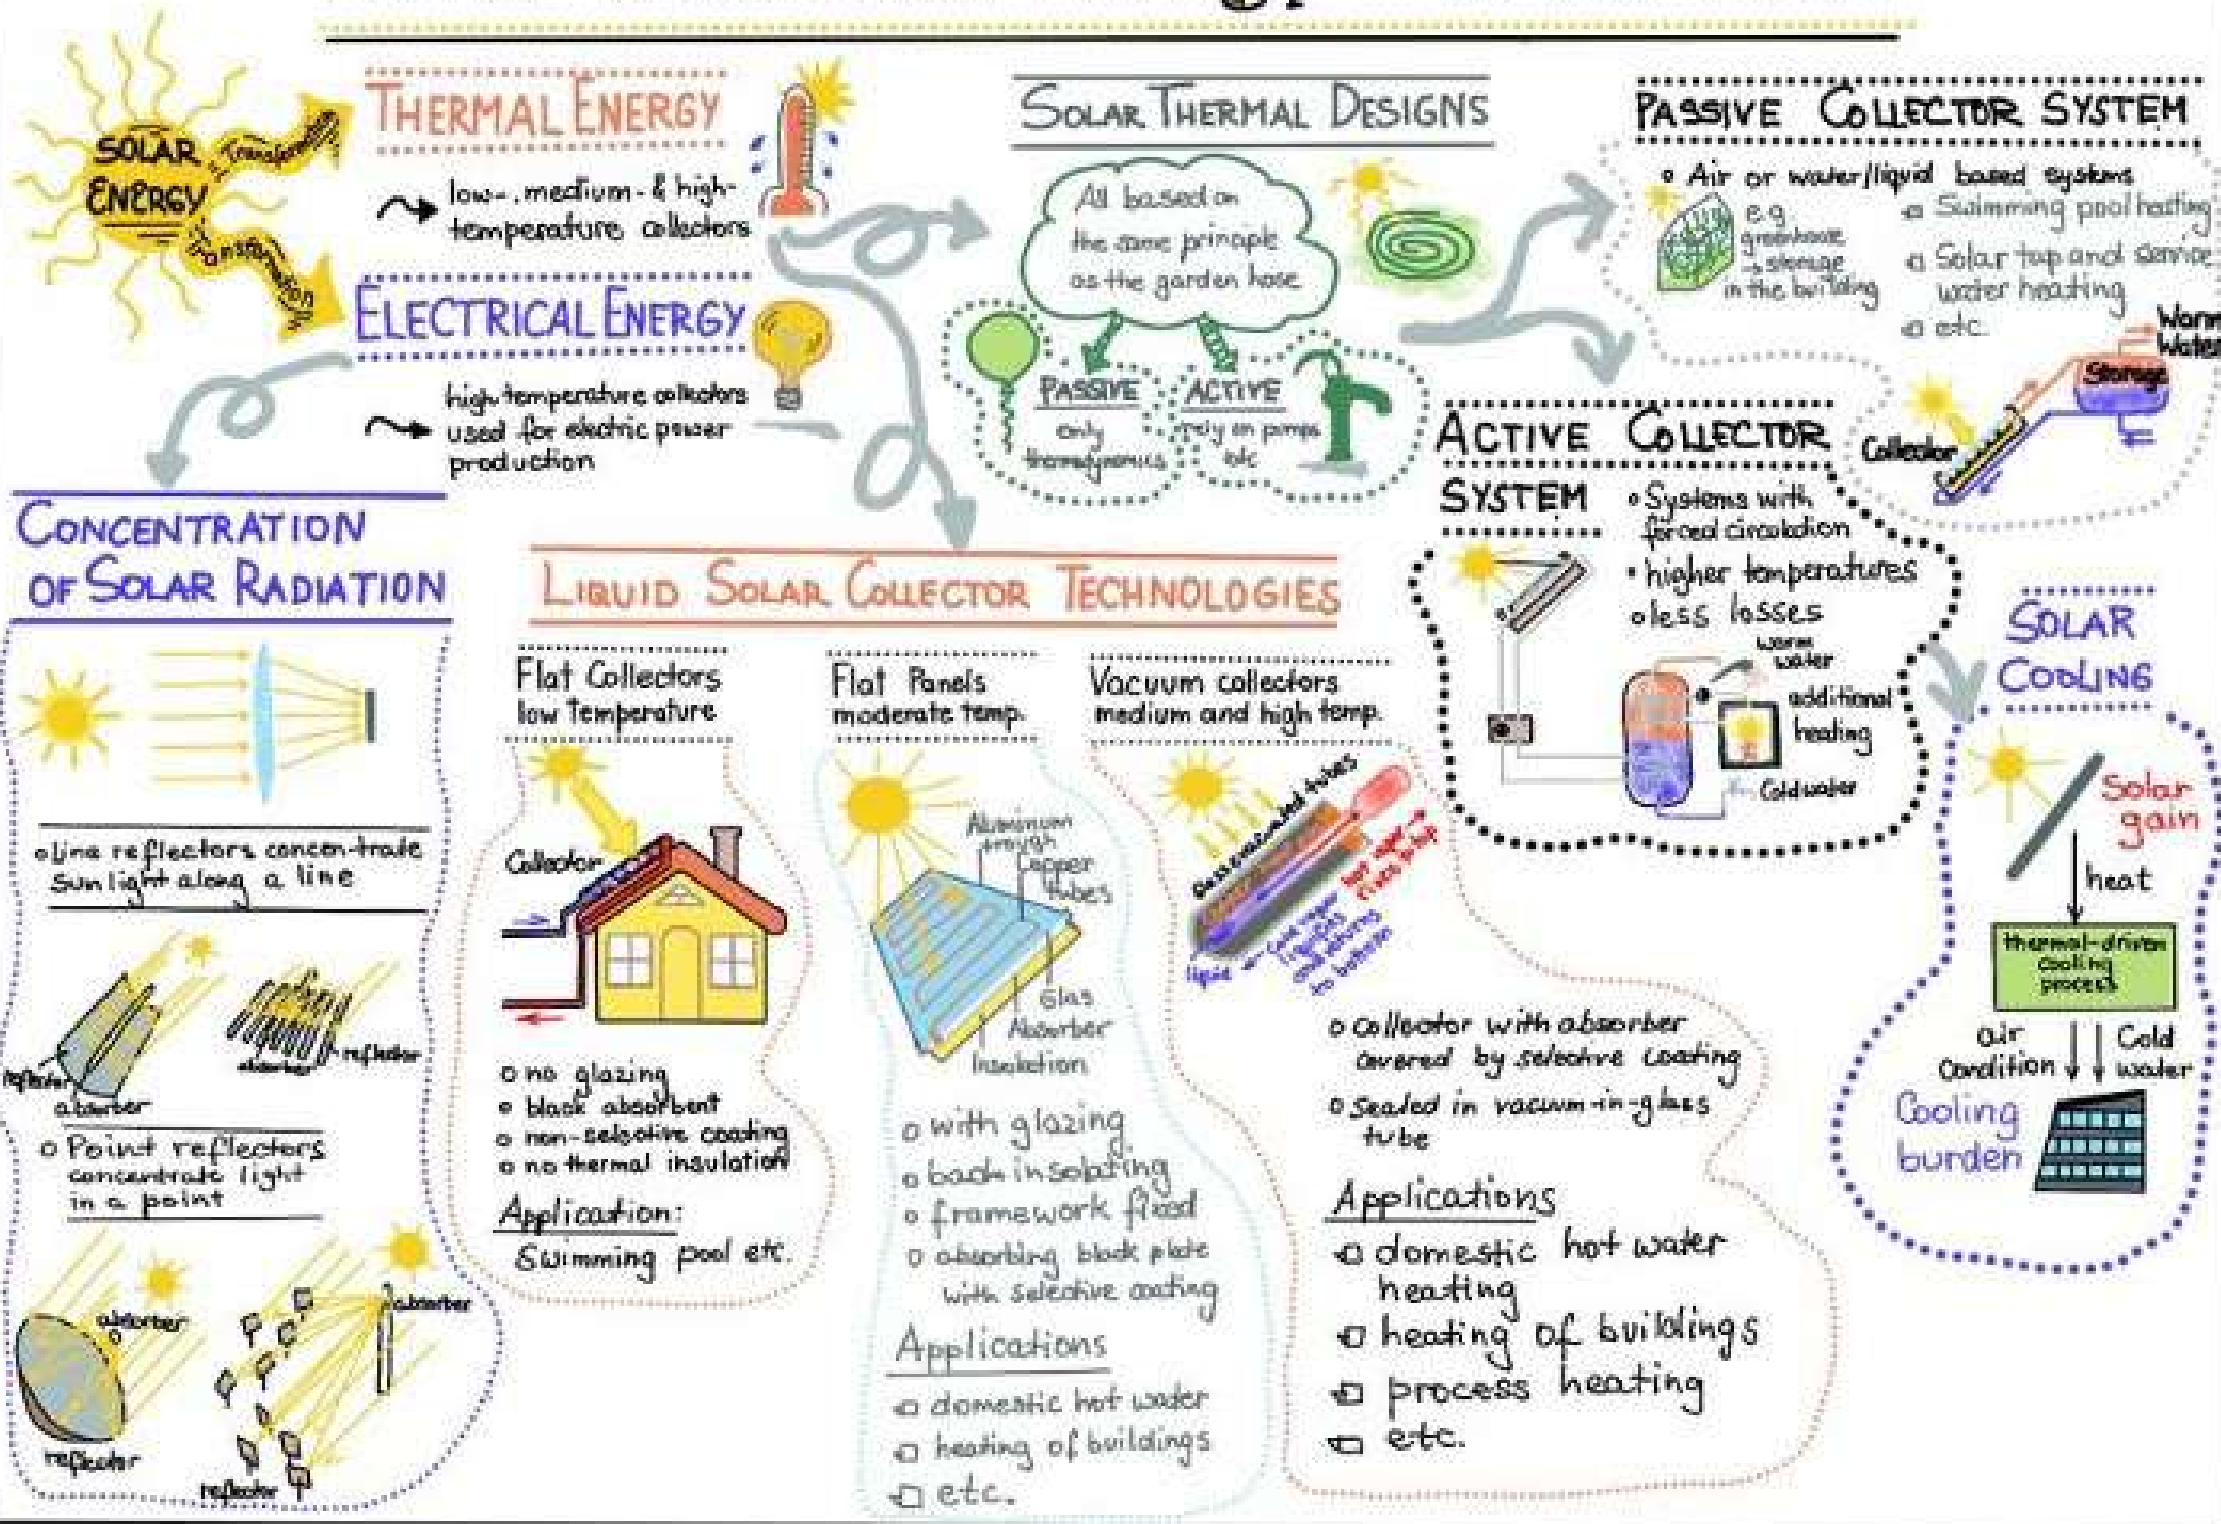 SOLAR
ENERGY
Transformation
Transformation
THERMAL ENERGY
low-, medium- & high-
temperature collectors
ELECTRICAL ENERGY
high temperature collectors
used for electric power
production
SOLAR THERMAL DESIGNS
All based on
the same principle
as the garden hose
PASSIVE
only
thermodynamics
ACTIVE
rely on pumps
etc
PASSIVE COLLECTOR SYSTEM
Air or water/liquid based systems
e.g.
greenhouse
→ storage
in the building
Swimming pool heating
Solar tap and service
water heating
etc.
Warm
Water
Storage
Collector
ACTIVE COLLECTOR
SYSTEM
Systems with
forced circulation
higher temperatures
less losses
warm
water
additional
heating
Cold water
SOLAR
COOLING
Solar
gain
heat
thermal-driven
cooling
process
air
Condition
Cold
water
Cooling
burden
CONCENTRATION
OF SOLAR RADIATION
Line reflectors concen-trate
Sunlight along a line
reflector
absorber
absorber
reflector
Point reflectors
concentrate light
in a point
absorber
reflector
absorber
reflector
LIQUID SOLAR COLLECTOR TECHNOLOGIES
Flat Collectors
low temperature
Collector
no glazing
black absorbent
non-selective coating
no thermal insulation
Application:
Swimming pool etc.
Flat Panels
moderate temp.
Aluminium
trough
Copper
tubes
Glas
Absorber
Insulation
with glazing
back insolating
framework fixed
absorbing black plate
with selective coating
Applications
domestic hot water
heating of buildings
etc.
Vacuum collectors
medium and high temp.
Glass evacuated tubes
Hot vapor
rises to top
Cold vapor
liquifies
and returns
to bottom
liquid
Collector with absorber
covered by selective coating
Sealed in vacuum-in-glass
tube
Applications
domestic hot water
heating
heating of buildings
process heating
etc.